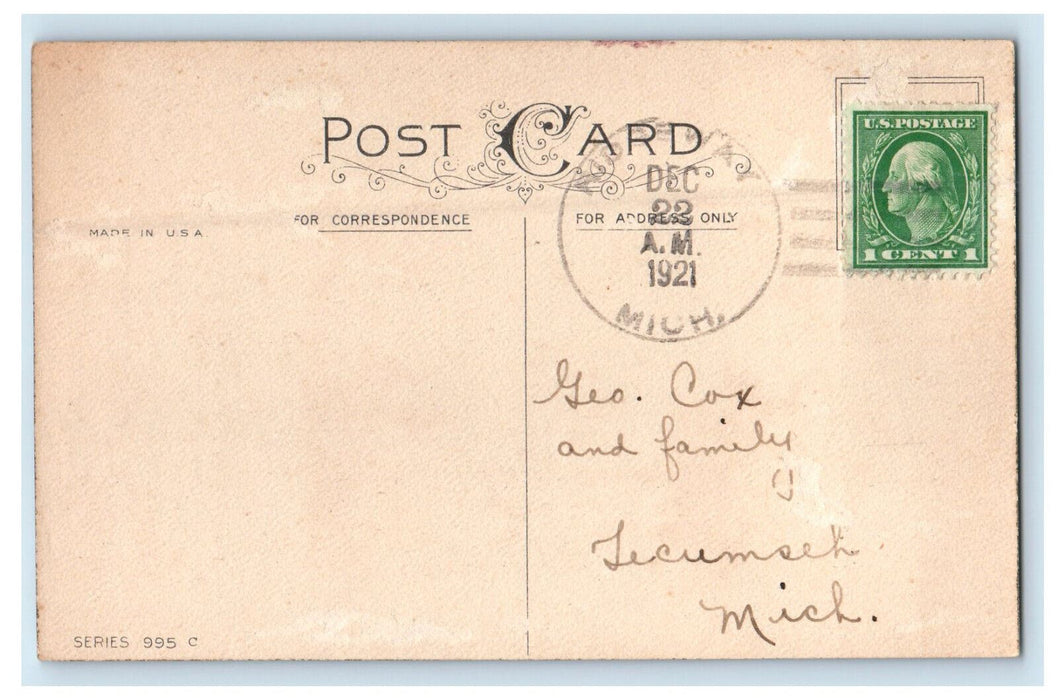 POST CARD
FOR CORRESPONDENCE
FOR ADDRESS ONLY
MADE IN U.S.A.
DEC
22
A.M.
1921
MICH.
U.S. POSTAGE
1 CENT 1
Geo. Cox
and family
Tecumseh
Mich.
SERIES 995 C